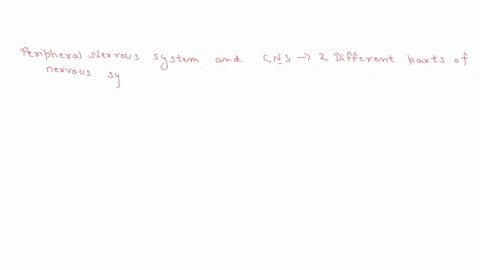 Peripheral Nervous system and CNS → 2 Different parts of
nervous sy